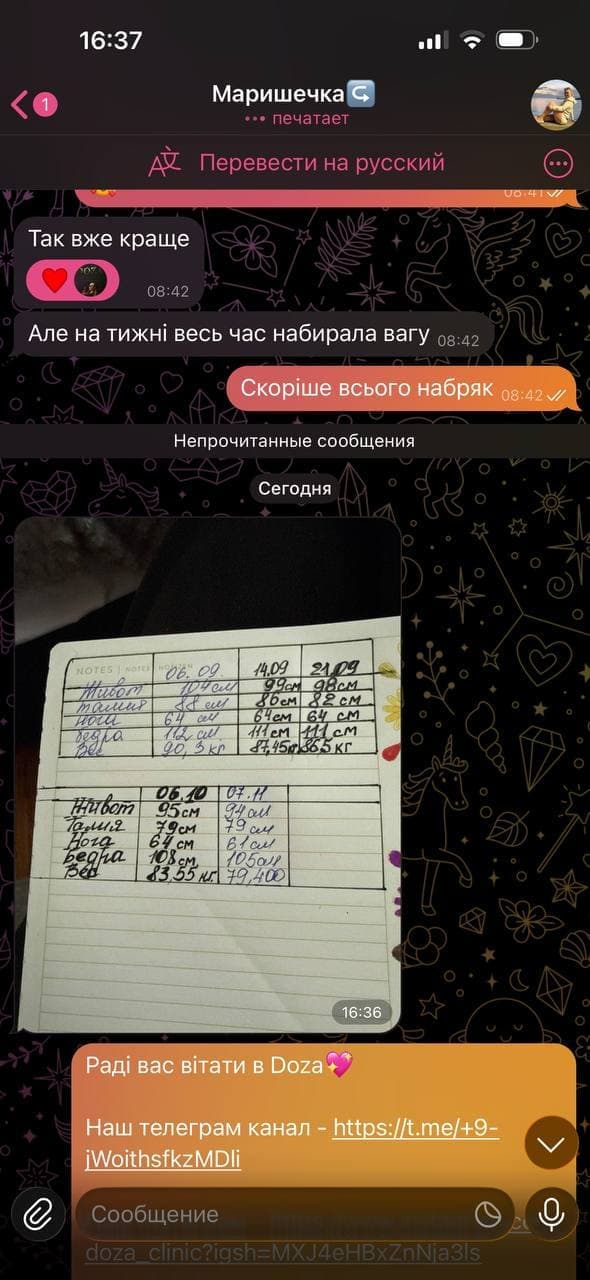 16:37
1
Маришечка
печатает
Перевести на русский
08:41
Так вже краще
08:42
Але на тижні весь час набирала вагу 08:42
Скоріше всього набряк 08:42
Непрочитанные сообщения
Сегодня
NOTES | NOTES
06.09. 14.09 21.09
Живот 104см 99см 98см
талия 88 см 86см 82 см
Ноги 64 см 64см 64 см
бедра 112 см 111см 111 см
Вес 90,3кг 87,45 86,5 кг
06.10 07.11
Живот 95см 94см
Талия 79см 79см
Нога 64см 61см
Бедра 108см 105см
Вес 83,55 кг. 79,400
16:36
Раді вас вітати в Doza
Наш телеграм канал - https://t.me/+9-
jWoithsfkzMDli
Сообщение
doza_clinic?igsh=MXJ4eHBxZnNja3ls